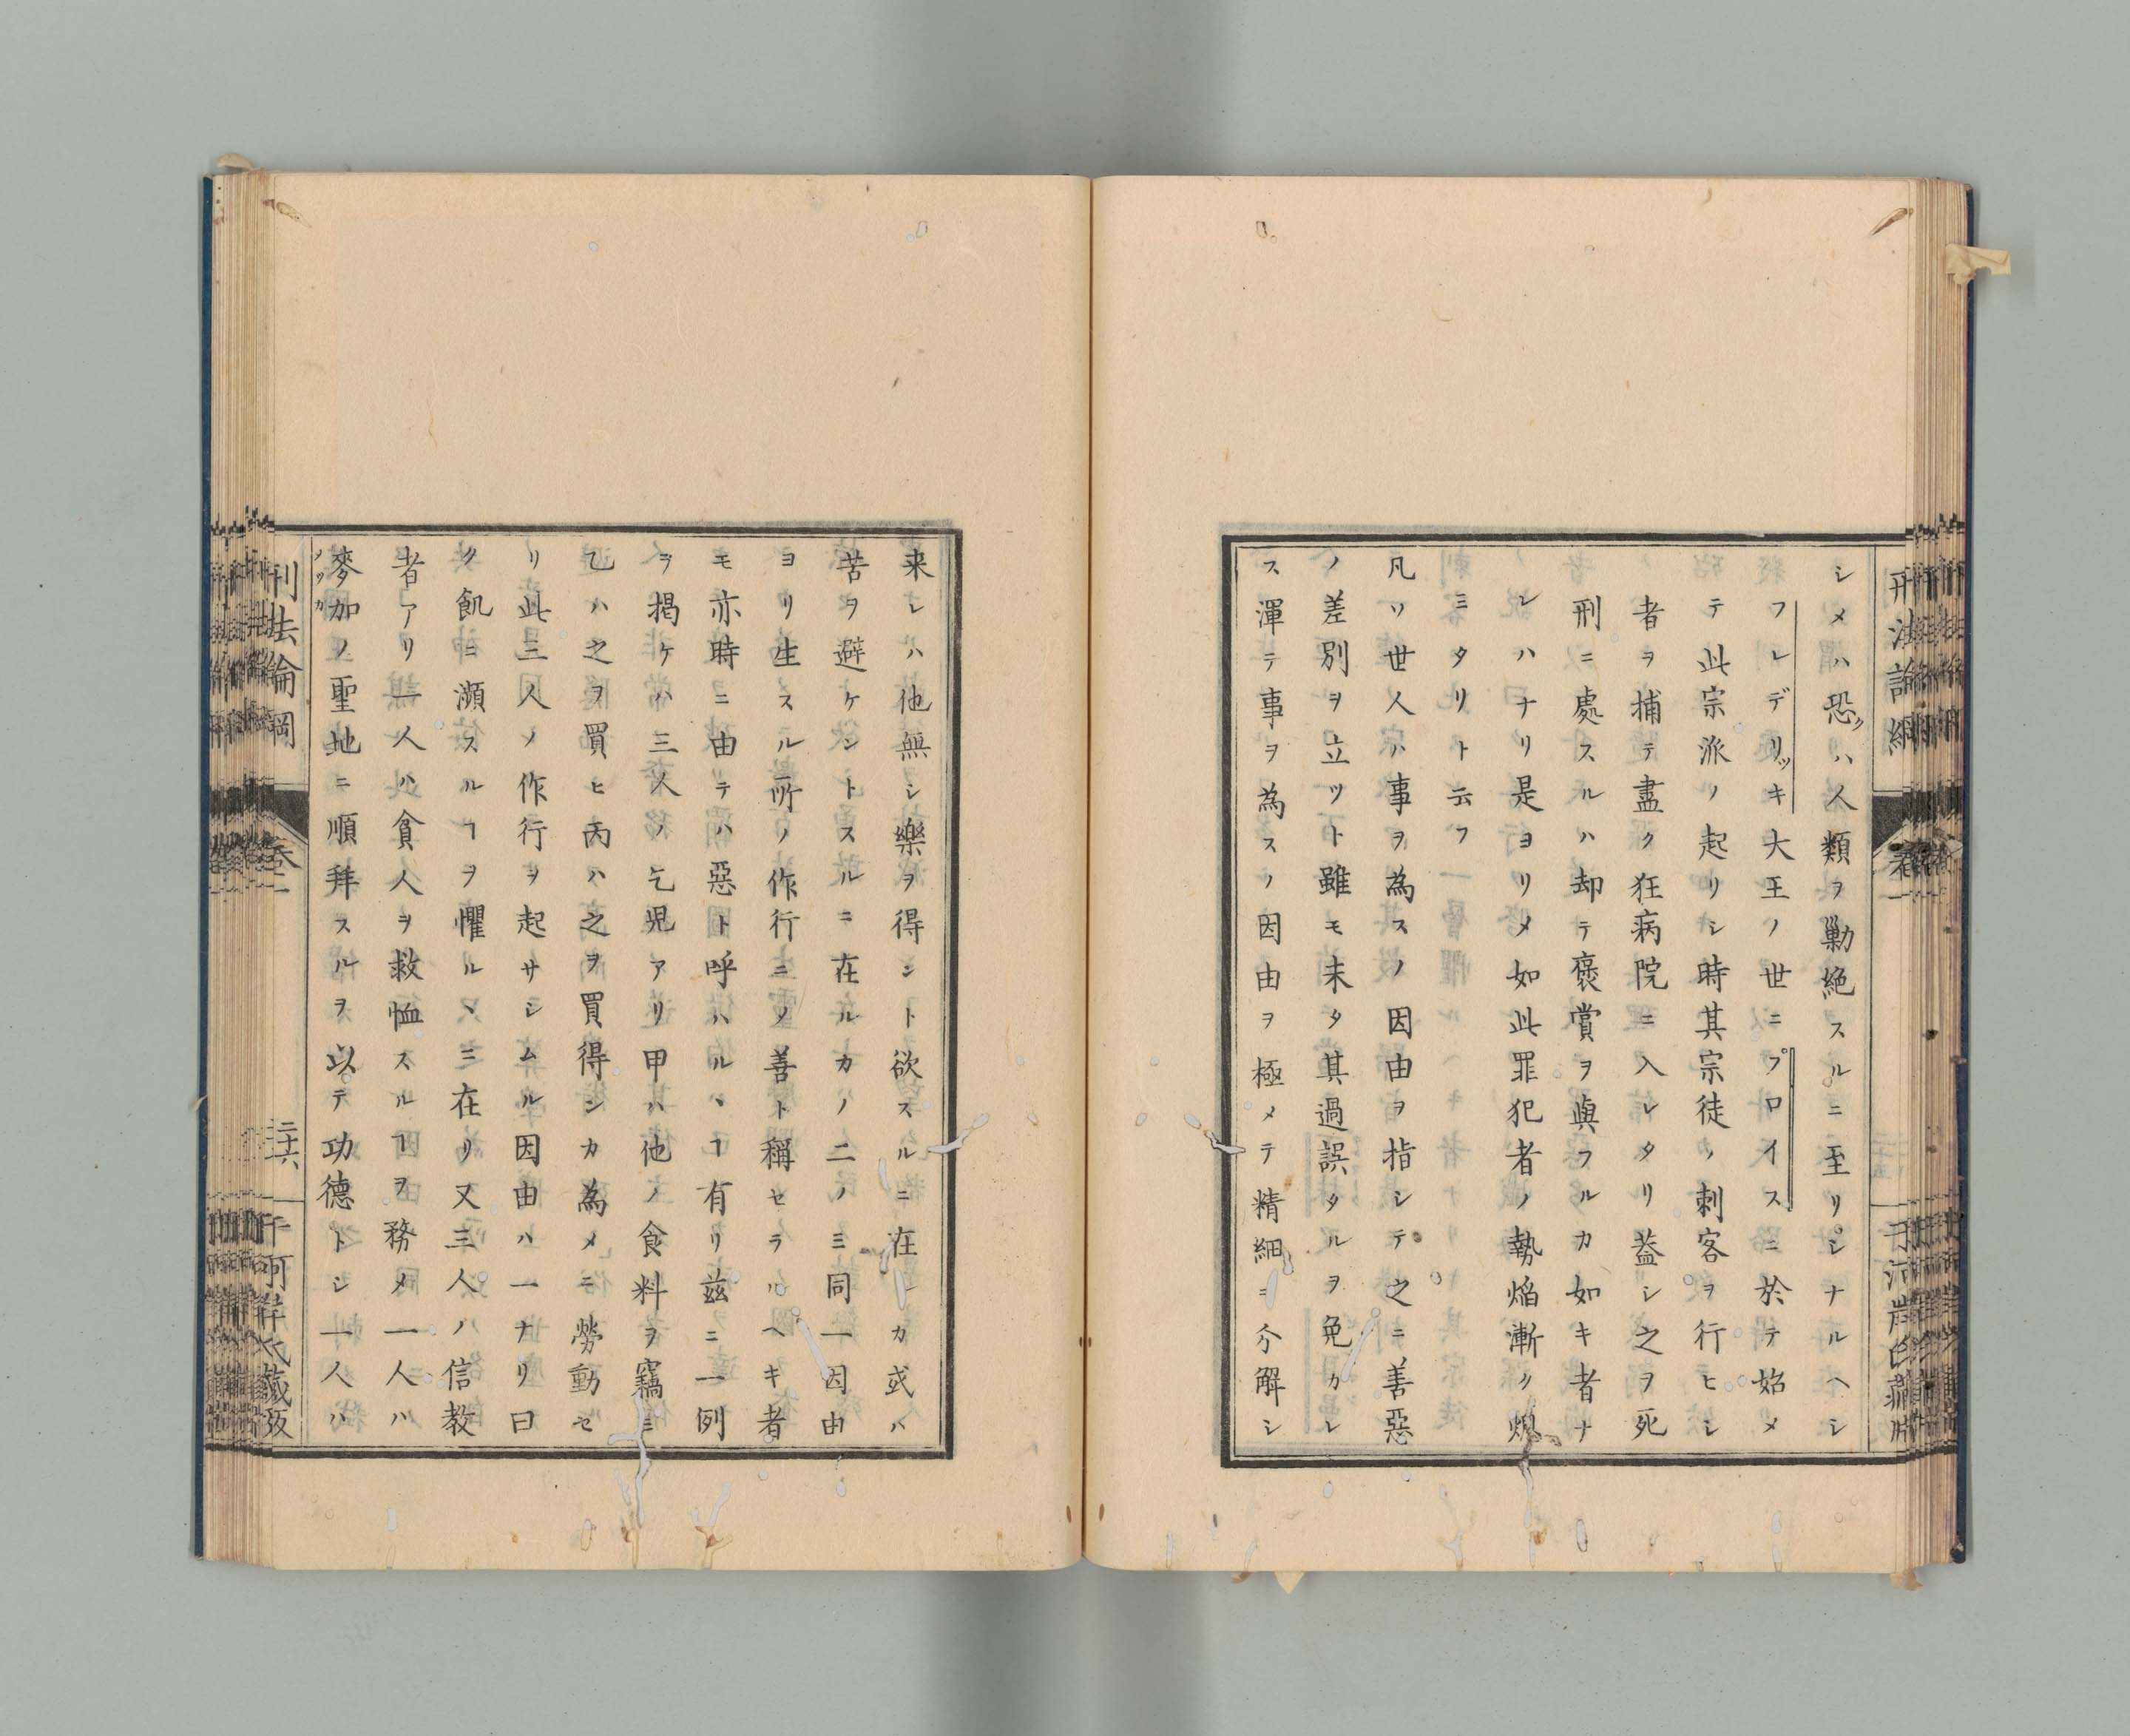 刑法論綱
卷一
シメハ恐クハ人類ヲ勦絶スルニ至リシナルヘシ
フレデリッキ大王ノ世ニプロイスニ於テ始メ
テ此宗派ノ起リシ時其宗徒ノ刺客ヲ行ヒシ
者ヲ捕テ盡ク狂病院ニ入レタリ蓋シ之ヲ死
刑ニ處スルハ却テ褒賞ヲ與フルカ如キ者ナ
レハナリ是ヨリメ如此罪犯者ノ勢焔漸ク熄
ミタリト云フ
凡ソ世人ハ事ヲ為スノ因由ヲ指シテ之ニ善惡
ノ差別ヲ立ツト雖モ未タ其過誤タルヲ免カレ
ス渾テ事ヲ為スノ因由ヲ極メテ精細ニ分解シ
来レハ他無シ樂ヲ得ント欲スルニ在ルカ或ハ
苦ヲ避ケントスルニ在ルカノ二ノミ同一因由
ヨリ生スル所ノ作行ニメ善ト稱セラルヘキ者
モ亦時ニ由テハ惡ト呼ハルヽヿ有リ茲ニ一例
ヲ揭ケハ三人ノ乞児アリ甲ハ他ノ食料ヲ竊ミ
乙ハ之ヲ買ヒ丙ハ之ヲ買得ンカ為メニ勞動セ
リ此三人ノ作行ヲ起サシムル因由ハ一ナリ曰
ク飢ニ瀕スルヿヲ懼ルヽミ在リ又三人ノ信教
者アリ一人ハ貧人ヲ救恤スルヿヲ務メ一人ハ
麥加ノ聖地ニ順拜スルヲ以テ功德トシ一人ハ
メツカ
刑法論綱
卷一
二十六